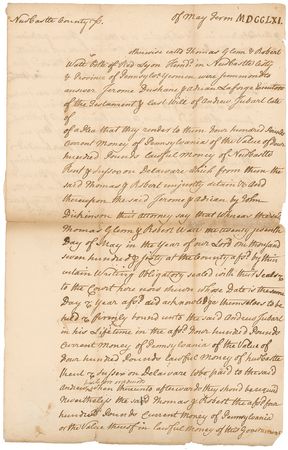 NewCastle County ss. Of May Term MDCCLXI.
otherwise called Thomas Glenn & Robert
Wall both of Red Lyon Hund. in NewCastle County
& Province of Pennsylv. Yeomen were summoned to
answer Jerome Dushane & Adrian Laforge Executors
of the Testament & last Will of Andrew Jubart late
of
of a Plea that they render to them Four hundred Pounds
Current Money of Pennsylvania of the Value of four
hundred Pounds lawful Money of NewCastle
Kent & Sussex on Delaware which from them the
said Thomas & Robert unjustly detain &
thereupon the said Jerome & Adrian by John
Dickinson their attorney say that Whereas the said
Thomas Glenn & Robert Wall the twenty seventh
Day of May in the Year of our Lord one thousand
seven hundred & fifty at the County afsd. by their
certain Writing Obligatory sealed with their Seals &
to the Court here now shewn whose Date is the same
Day & Year afsd. did acknowledge themselves to be
held & firmly bound unto the said Andrew Jubart
in his Lifetime in the afsd. four hundred Pounds
current Money of Pennsylvania of the Value of
four hundred Pounds lawful Money of NewCastle
Kent & Sussex on Delaware to be paid to the said
Andrew when thereunto afterwards they should be required
Nevertheless the said Thomas & Robert the afsd. four
hundred Pounds current Money of Pennsylvania
or the Value thereof in lawful Money of this Government